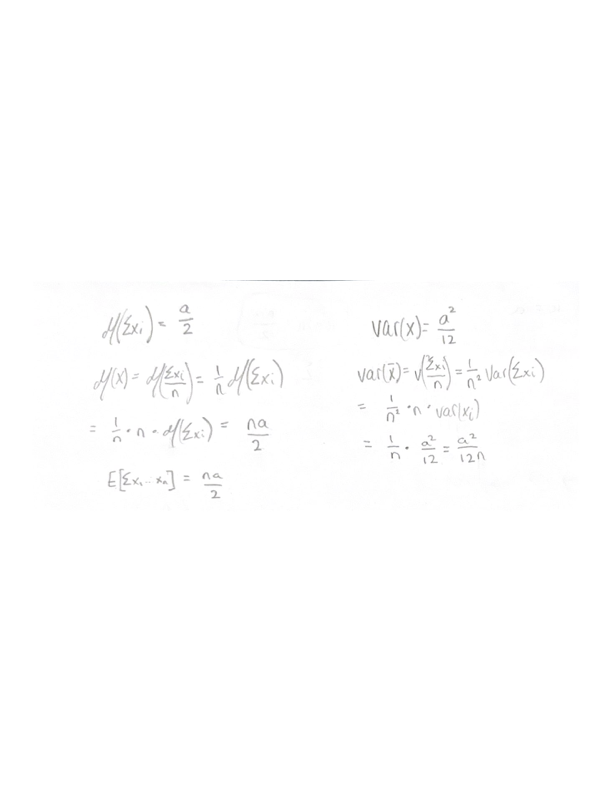 μ(Σxᵢ) = a/2
μ(x) = μ(Σxᵢ/n) = 1/n μ(Σxᵢ)
= 1/n · n · μ(Σxᵢ) = na/2
E[Σx₁...xₙ] = na/2
var(x) = a²/12
var(x̄) = v(Σxᵢ/n) = 1/n² var(Σxᵢ)
= 1/n² · n · var(xᵢ)
= 1/n · a²/12 = a²/12n